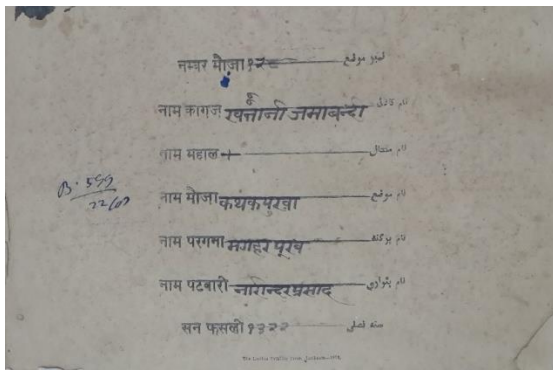 नम्बर मौजा १२८ نمبر موضع
नाम कागज खतौनी जमाबन्दी نام کاغذ
नाम महाल + نام محال
नाम मौजा कथकपुरवा نام موضع
नाम परगना मगहर पूरब نام پرگنہ
नाम पटवारी नागेन्दरप्रसाद نام پٹواری
सन फसली १३२२ سنہ فصلی